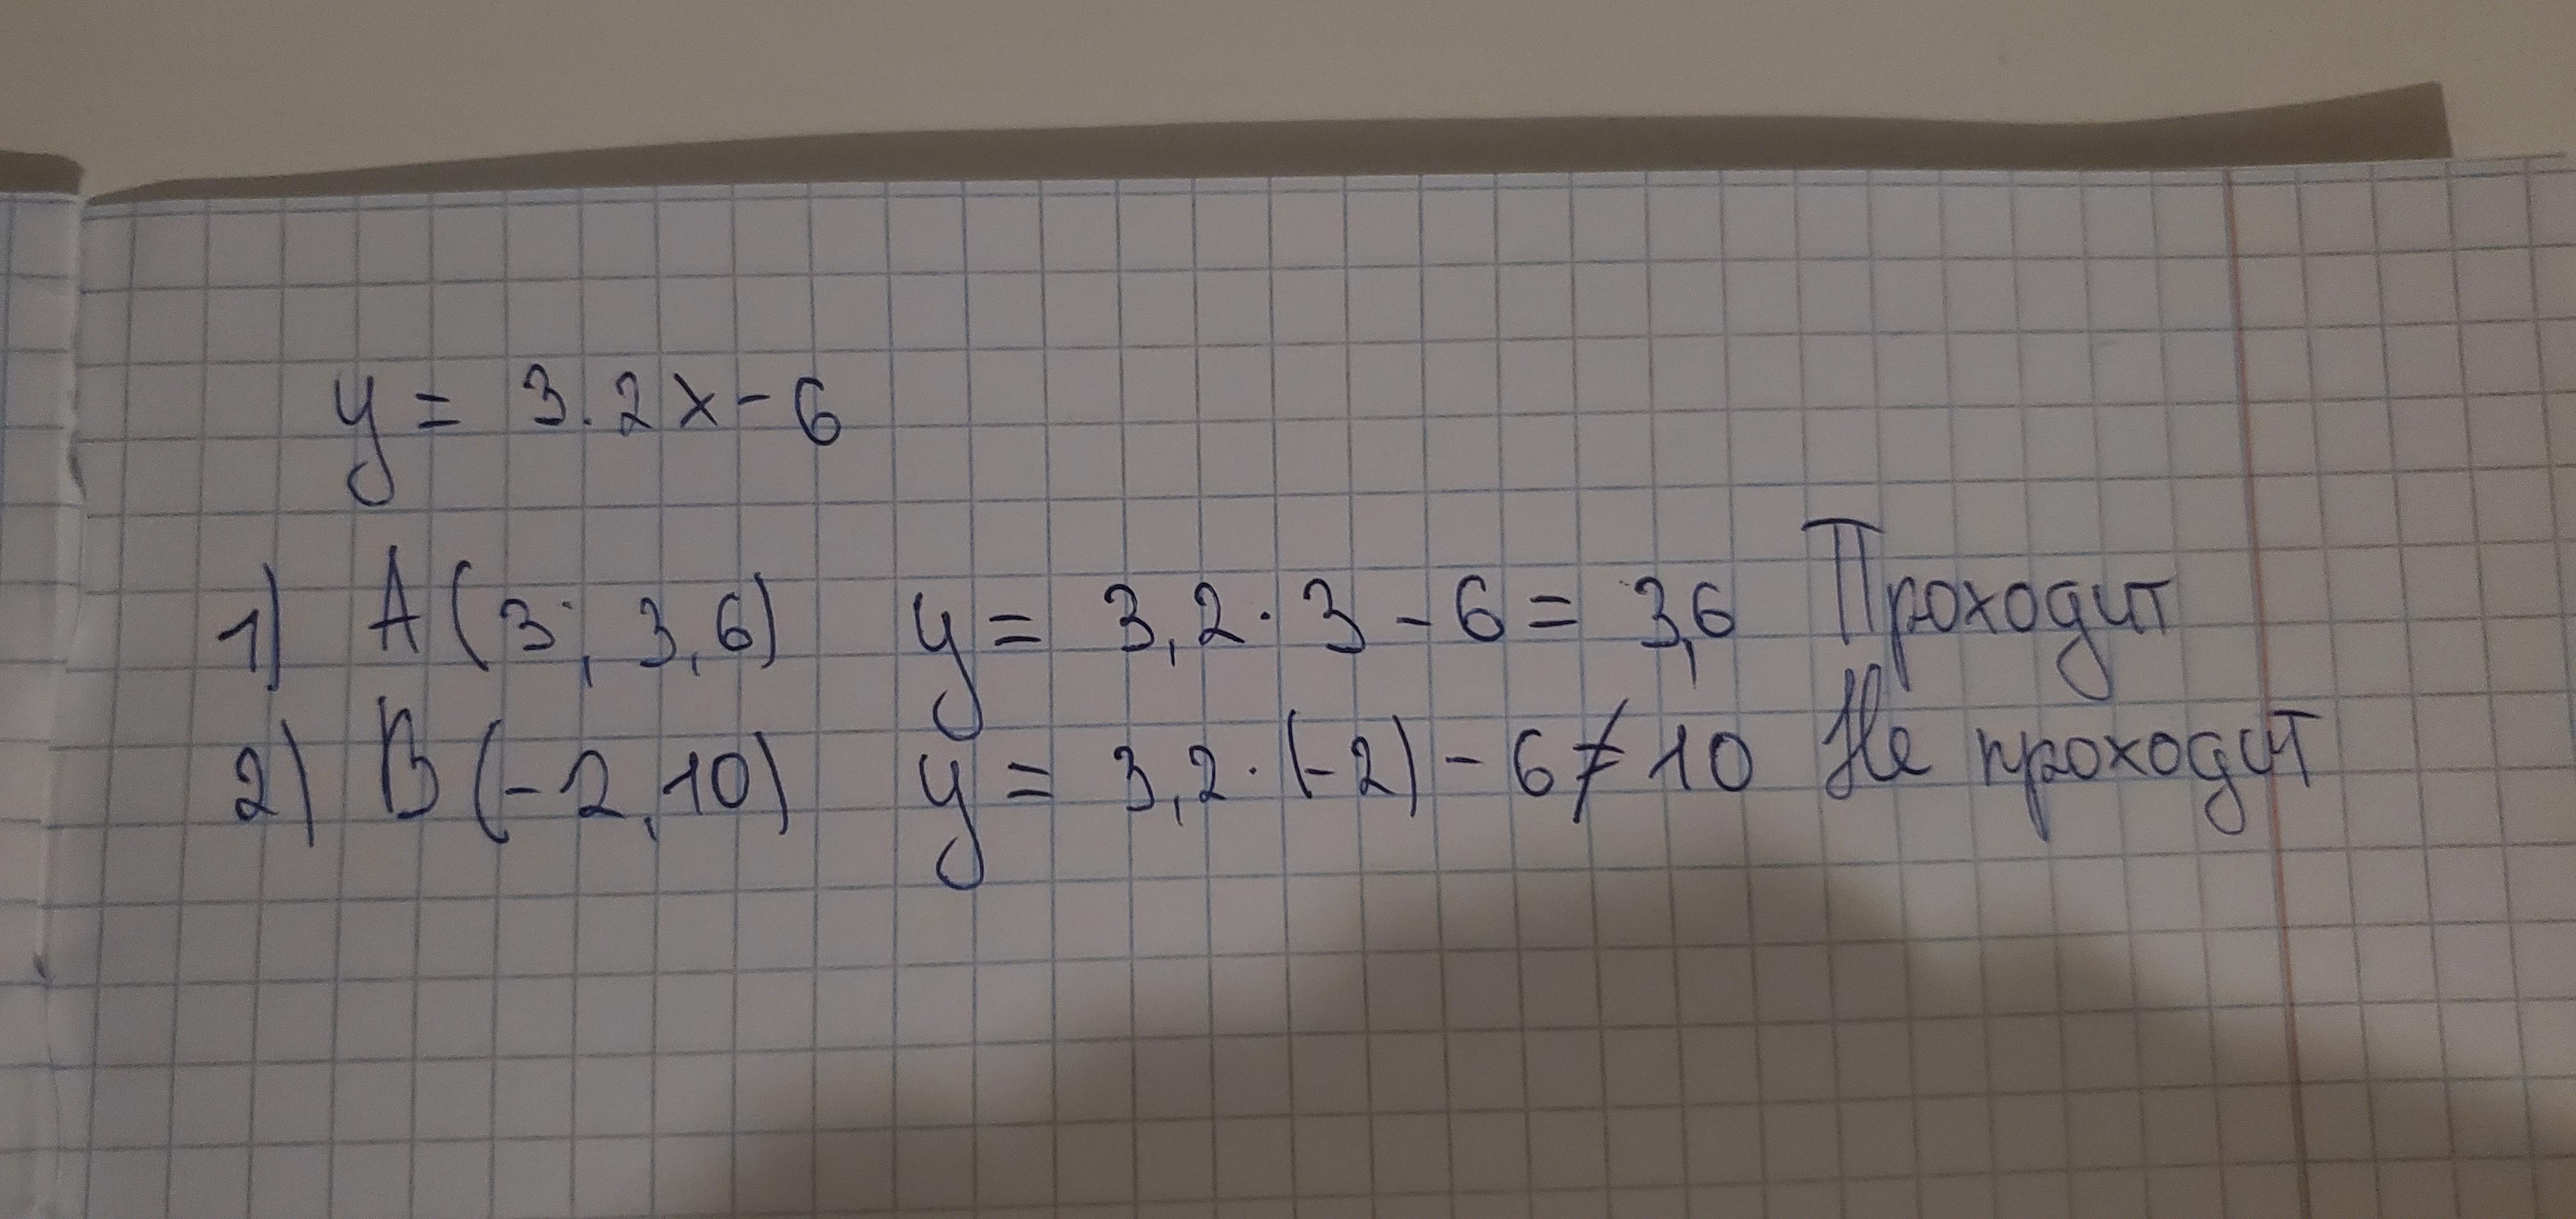 y = 3.2x - 6
1) A (3; 3,6) y = 3,2 · 3 - 6 = 3,6 Проходит
2) B (-2, 10) y = 3,2 · (-2) - 6 ≠ 10 Не проходит